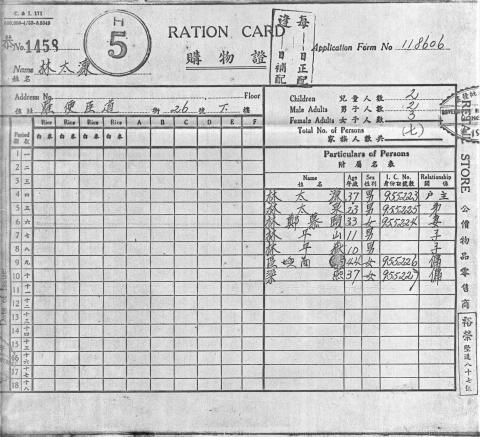 C. & I. 171
H
5
RATION CARD
購物證
No. 1458
Name 林太
姓名
Application Form No 118606
Address No. Floor
住址 醫道 街 26 號 下 樓
Children 兒童人數 2
Male Adults 男子人數 2
Female Adults 女子人數 3
Total No. of Persons (七)
家族人數共
Period 期數
Rice Rice Rice Rice A B C D E F
白米 白米 白米 白米
1 一
2 二
3 三
4 四
5 五
6 六
7 七
8 八
9 九
10 十
11 十一
12 十二
13 十三
14 十四
15 十五
16 十六
17 十七
18 十八
Particulars of Persons
附屬名表
Name 姓名 Age 年歲 Sex 性別 I. C. No. 身份證號數 Relationship 關係
林太 37 男 955223 戶主
林太 23 男 955225 弟
林鄭慕 33 女 955224 妻
林平山 11 男 子
林平 10 男 子
44 女 955226 傭
梁 37 女 955227 傭
RETAIL STORE 公價物品零售商
裕榮
堅道八十七號